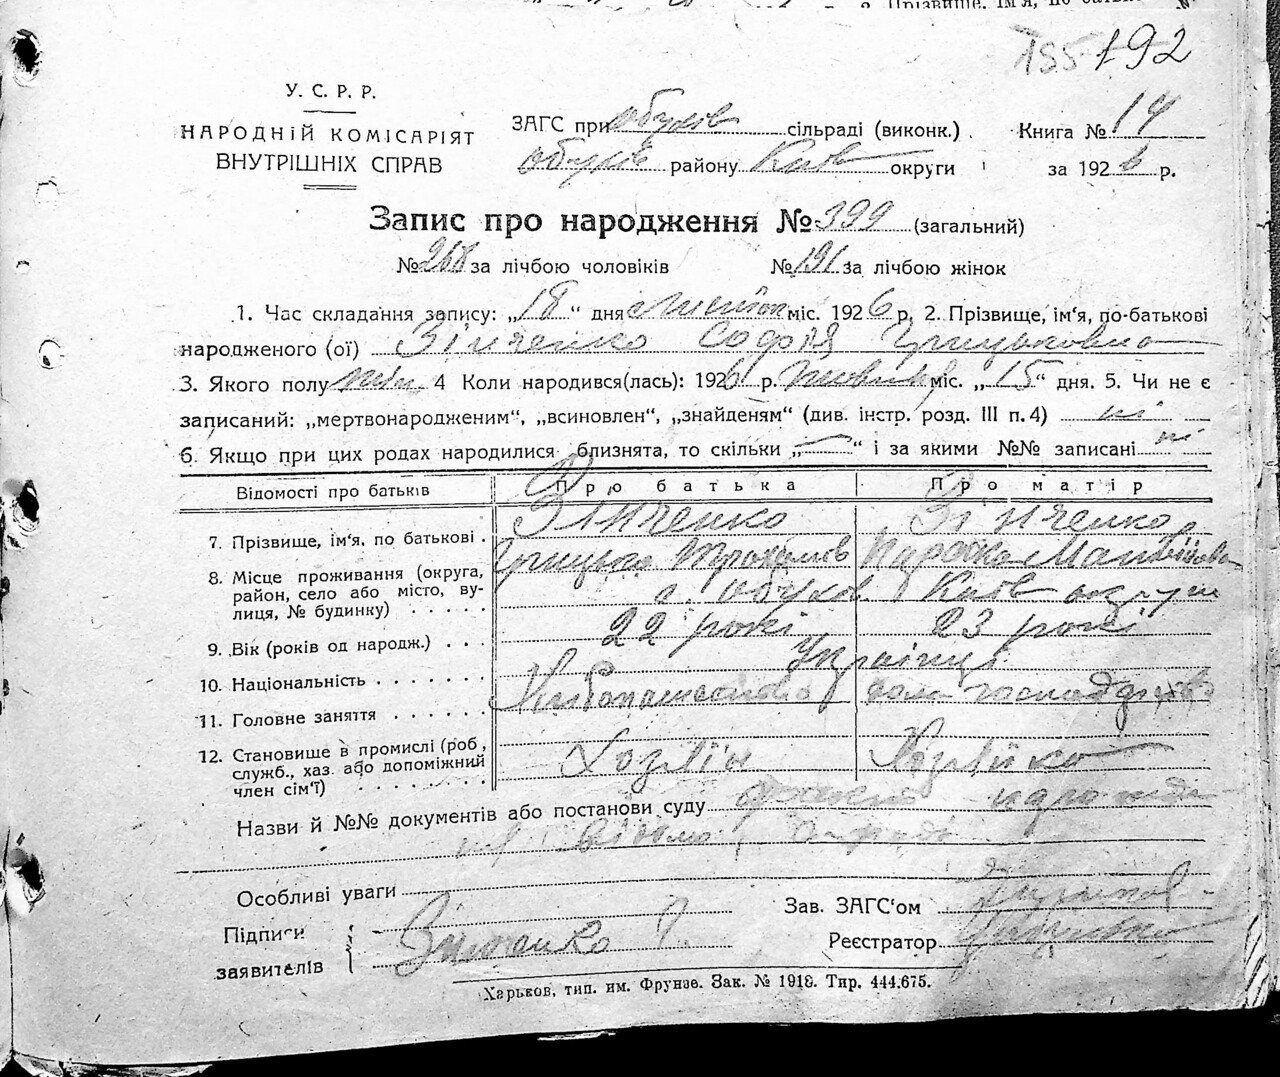 192
У. С. Р. Р.
НАРОДНІЙ КОМІСАРІЯТ
ВНУТРІШНІХ СПРАВ
ЗАГС при Обухів сільраді (виконк.)
Книга № 14
Обухів району Київ округи
за 1926 р.
Запис про народження № 399 (загальний)
№ 268 за лічбою чоловіків № 191 за лічбою жінок
1. Час складання запису: „18“ дня міс. 1926 р. 2. Прізвище, ім'я, по-батькові
народженого (ої) Зінченко Софія Грицьковна
3. Якого полу жін 4 Коли народився(лась): 1926 р. міс. „15“ дня. 5. Чи не є
записаний: „мертвонародженим“, „всиновлен“, „знайденям“ (див. інстр. розд. III п. 4) ні
6. Якщо при цих родах народилися близнята, то скільки „—“ і за якими №№ записані ні
Відомості про батьків Про батька Про матір
7. Прізвище, ім'я, по батькові Зінченко Зінченко
Грицько
8. Місце проживання (округа,
район, село або місто, ву-
лиця, № будинку)
с. Обухов Київ округи
9. Вік (років од народж.) 22 років 23 років
10. Національність Українці
11. Головне заняття
12. Становище в промислі (роб.,
служб., хаз. або допоміжний
член сім'ї)
Хозяїн Хозяйка
Назви й №№ документів або постанови суду
Особливі уваги
Підписи
заявителів
Зінченко Г.
Зав. ЗАГС'ом
Реєстратор
Харьков, тип. им. Фрунзе. Зак. № 1918. Тир. 444.675.